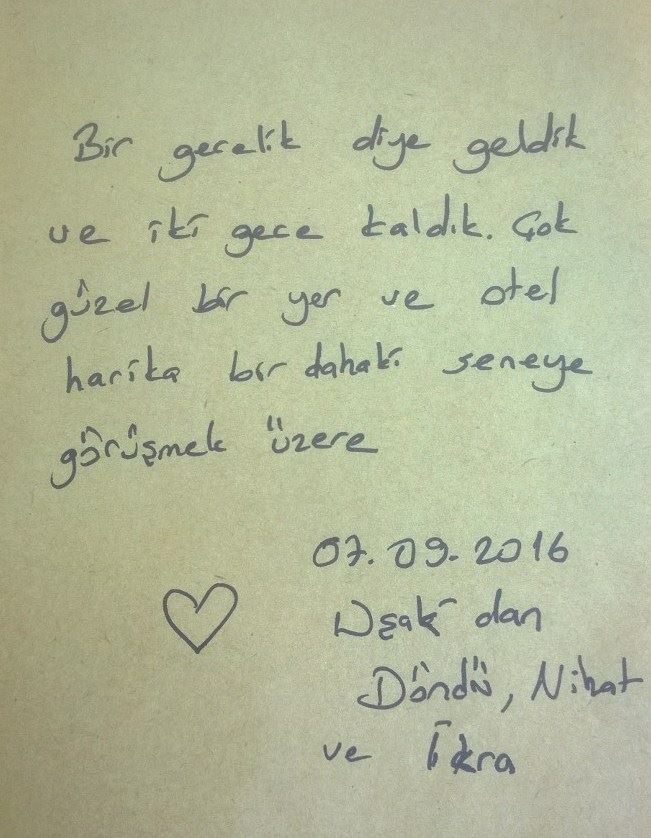 Bir gecelik diye geldik
ve iki gece kaldık. Çok
güzel bir yer ve otel
harika bir dahaki seneye
görüşmek üzere
07.09.2016
Uşak'dan
Döndü, Nihat
ve İkra